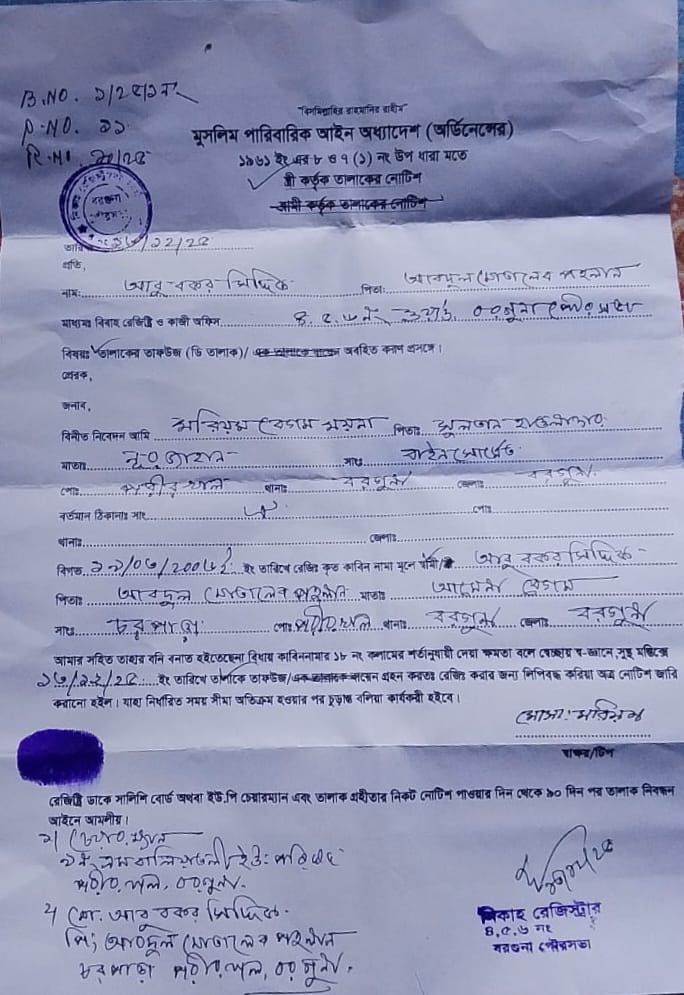 B.NO. ১/২৫/১নং
P.NO. ১১
R.NO. ২০/২৫
বিসমিল্লাহির রাহমানির রাহীম
মুসলিম পারিবারিক আইন অধ্যাদেশ (অর্ডিনেন্সের)
১৯৬১ ইং এর ৮ ও ৭ (১) নং উপ ধারা মতে
স্ত্রী কর্তৃক তালাকের নোটিশ
স্বামী কর্তৃক তালাকের নোটিশ
তারিখ
প্রতি,
নাম: আবু বকর সিদ্দিক পিতা: আবদুল মোতালেব পহলান
মাধ্যমঃ বিবাহ রেজিষ্ট্রি ও কাজী অফিস ৪, ৫, ৬ নং ওয়ার্ড, বরগুনা পৌরসভা
বিষয়ঃ তালাকের তাফউজ (ডি তালাক)/ অবহিত করণ প্রসঙ্গে।
প্রেরক,
জনাব,
বিনীত নিবেদন আমি মরিয়ম বেগম ময়না পিতাঃ সুলতান হাওলাদার
মাতাঃ নুরজাহান সাং
পোঃ পরীরখাল থানাঃ বরগুনা জেলাঃ বরগুনা
বর্তমান ঠিকানাঃ সাং ঐ পোঃ
থানাঃ জেলাঃ
বিগত ইং তারিখে রেজিঃ কৃত কাবিন নামা মূলে স্বামী/ আবু বকর সিদ্দিক
পিতাঃ আবদুল মোতালেব পহলান মাতাঃ আমেনা বেগম
সাং চরপাড়া পোঃ পরীরখাল থানাঃ বরগুনা জেলাঃ বরগুনা
আমার সহিত তাহার বনি বনাত হইতেছেনা বিধায় কাবিননামার ১৮ নং কলামের শর্তানুযায়ী দেয়া ক্ষমতা বলে স্বেচ্ছায় স্ব-জ্ঞানে, সুস্থ মস্তিষ্কে
ইং তারিখে তালাকে তাফউজ/ গ্রহন করতঃ রেজিঃ করার জন্য লিপিবদ্ধ করিয়া অত্র নোটিশ জারি
করানো হইল। যাহা নির্ধারিত সময় সীমা অতিক্রম হওয়ার পর চূড়ান্ত বলিয়া কার্যকরী হইবে।
মোসাঃ মরিয়ম
স্বাক্ষর/টিপ
রেজিষ্ট্রি ডাকে সালিশি বোর্ড অথবা ইউ.পি চেয়ারম্যান এবং তালাক গ্রহীতার নিকট নোটিশ পাওয়ার দিন থেকে ৯০ দিন পর তালাক নিবন্ধন
আইনে আমলীয়।
১। চেয়ারম্যান
ইউঃ পরিষদ
পরীরখাল, বরগুনা।
২। মোঃ আবু বকর সিদ্দিক
পিং আবদুল মোতালেব পহলান
চরপাড়া পরীরখাল, বরগুনা।
নিকাহ রেজিস্ট্রার
৪,৫,৬ নং
বরগুনা পৌরসভা